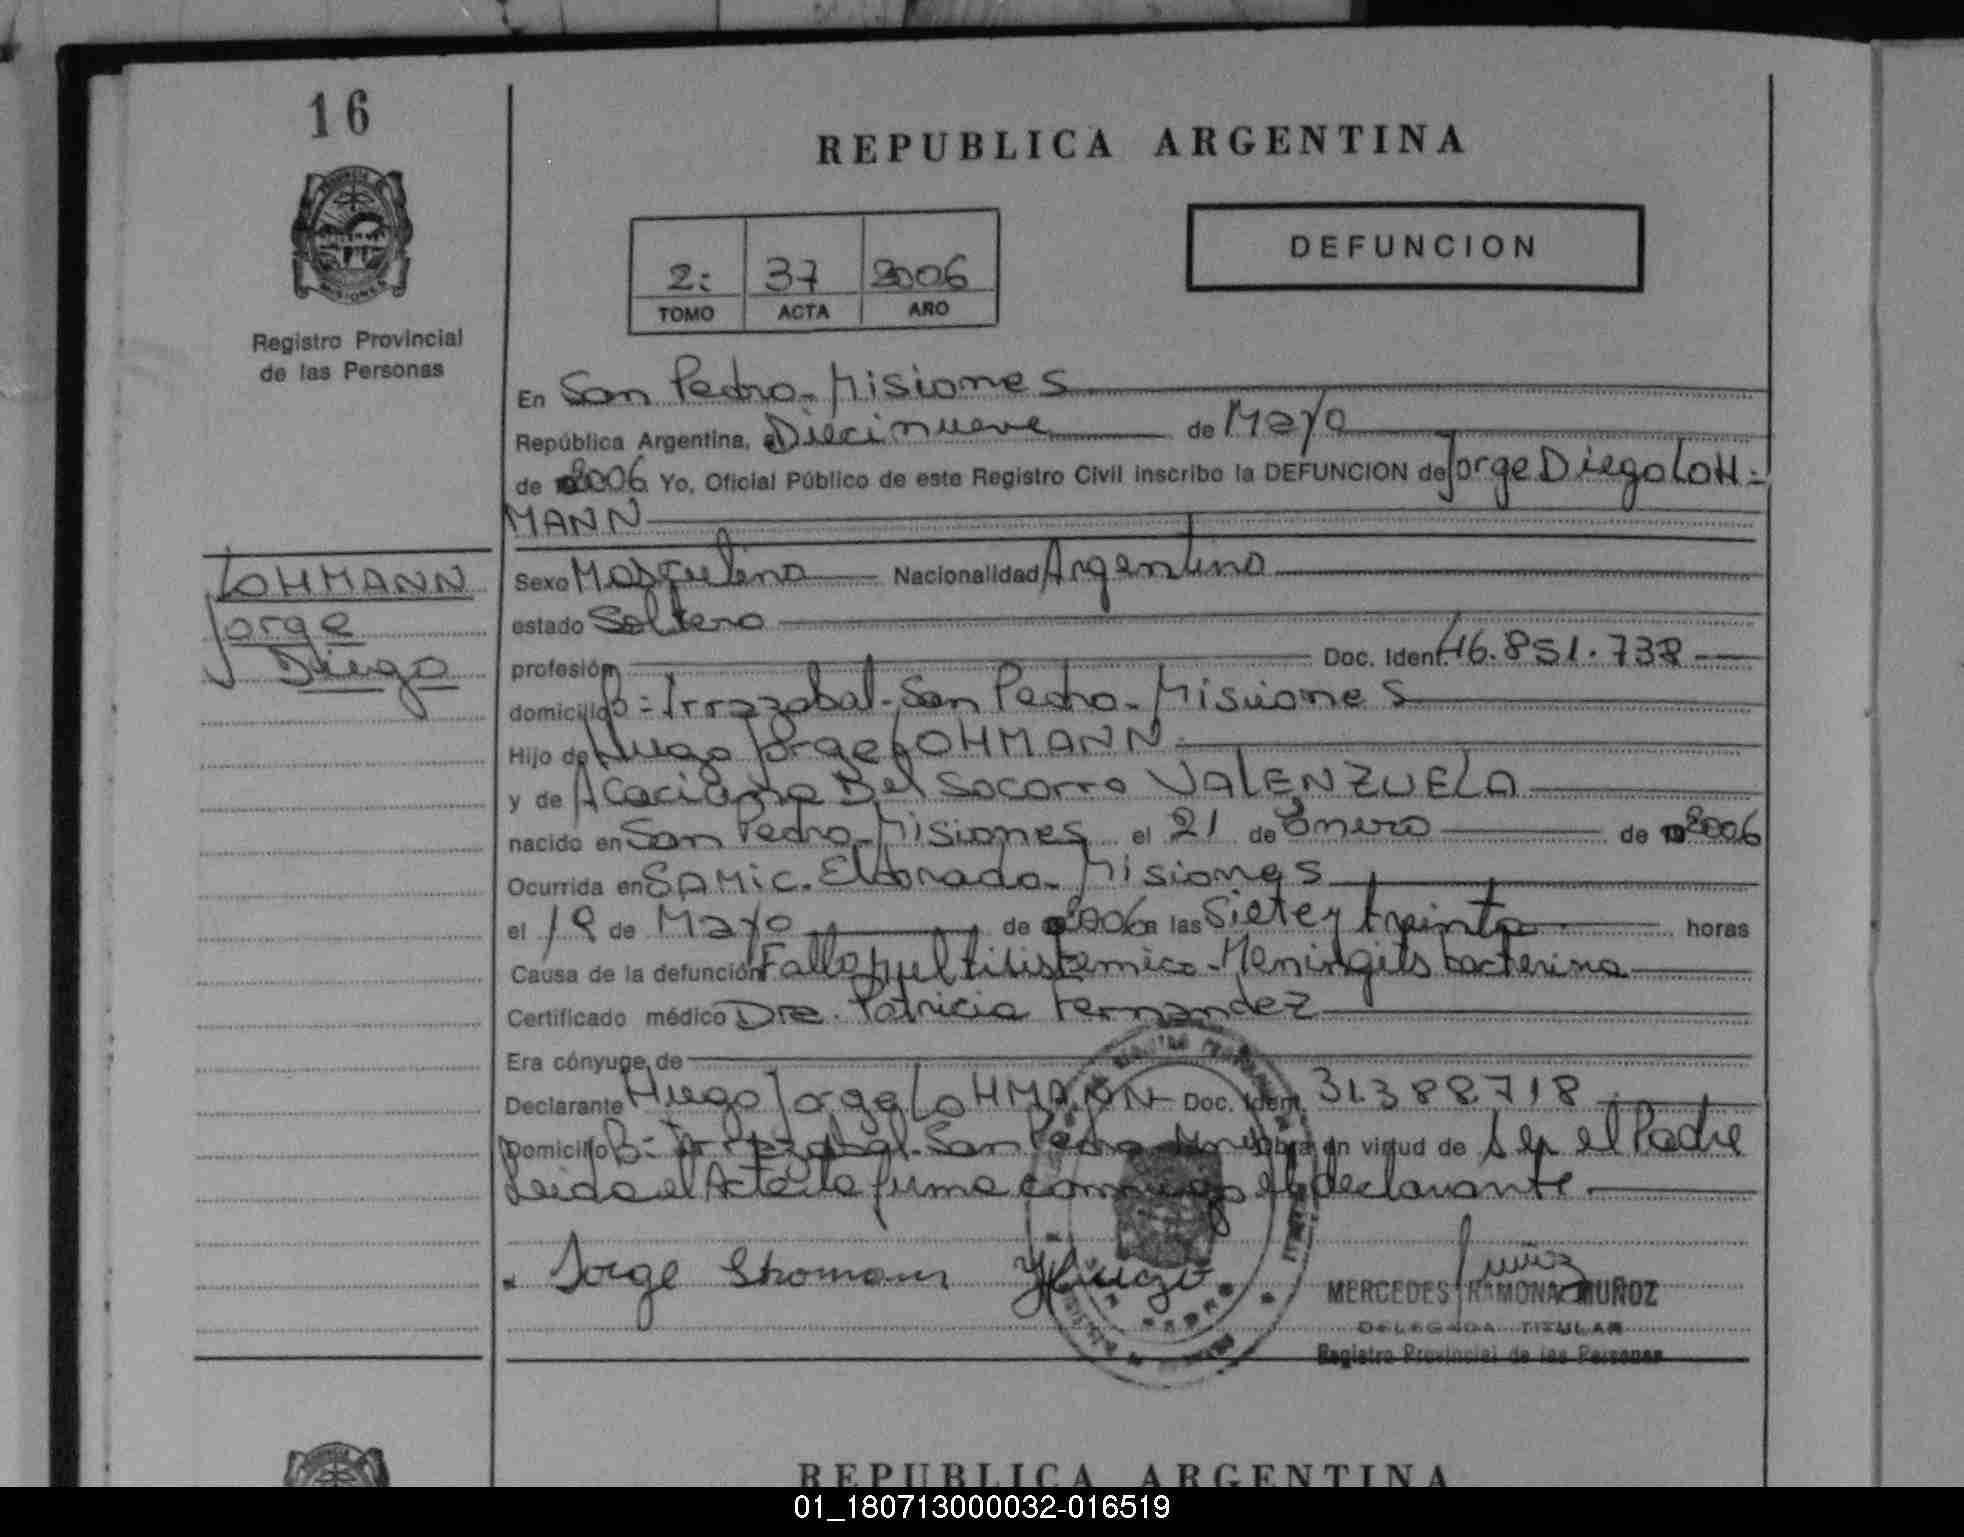 16
REPUBLICA ARGENTINA
2: 37 2006
TOMO ACTA AÑO
DEFUNCION
Registro Provincial
de las Personas
En San Pedro - Misiones
República Argentina, a Diecinueve de Mayo
de 2006 Yo, Oficial Público de este Registro Civil inscribo la DEFUNCION de Jorge Diego LOH-
MANN
LOHMANN
Jorge
Diego
Sexo Masculino Nacionalidad Argentino
estado Soltero
profesión Doc. Ident. 46.851.738
domicilio B: Irrazabal - San Pedro - Misiones
Hijo de Hugo Jorge LOHMANN
y de Acaciana Del Socorro VALENZUELA
nacido en San Pedro - Misiones el 21 de Enero de 2006
Ocurrida en SAMIC. Eldorado - Misiones
el 19 de Mayo de 2006 a las Siete y treinta horas
Causa de la defunción Falla multisistemica - Meningitis bacteriana
Certificado médico Dra. Patricia Fernandez
Era cónyuge de
Declarante Hugo Jorge LOHMANN Doc. Ident. 31.388.718
Domicilio B: Irrazabal - San Pedro - obra en virtud de ser el Padre
Leida el Acta la firma conmigo el declarante
Jorge Hugo
Muñoz
MERCEDES RAMONA MUÑOZ
DELEGADA TITULAR
Registro Provincial de las Personas
REPUBLICA ARGENTINA
01_180713000032-016519